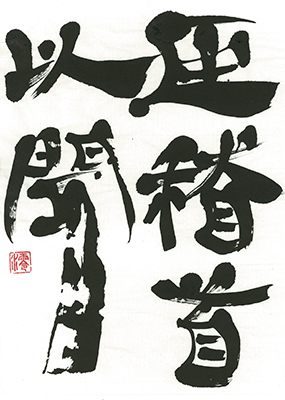 臣稽首
以聞